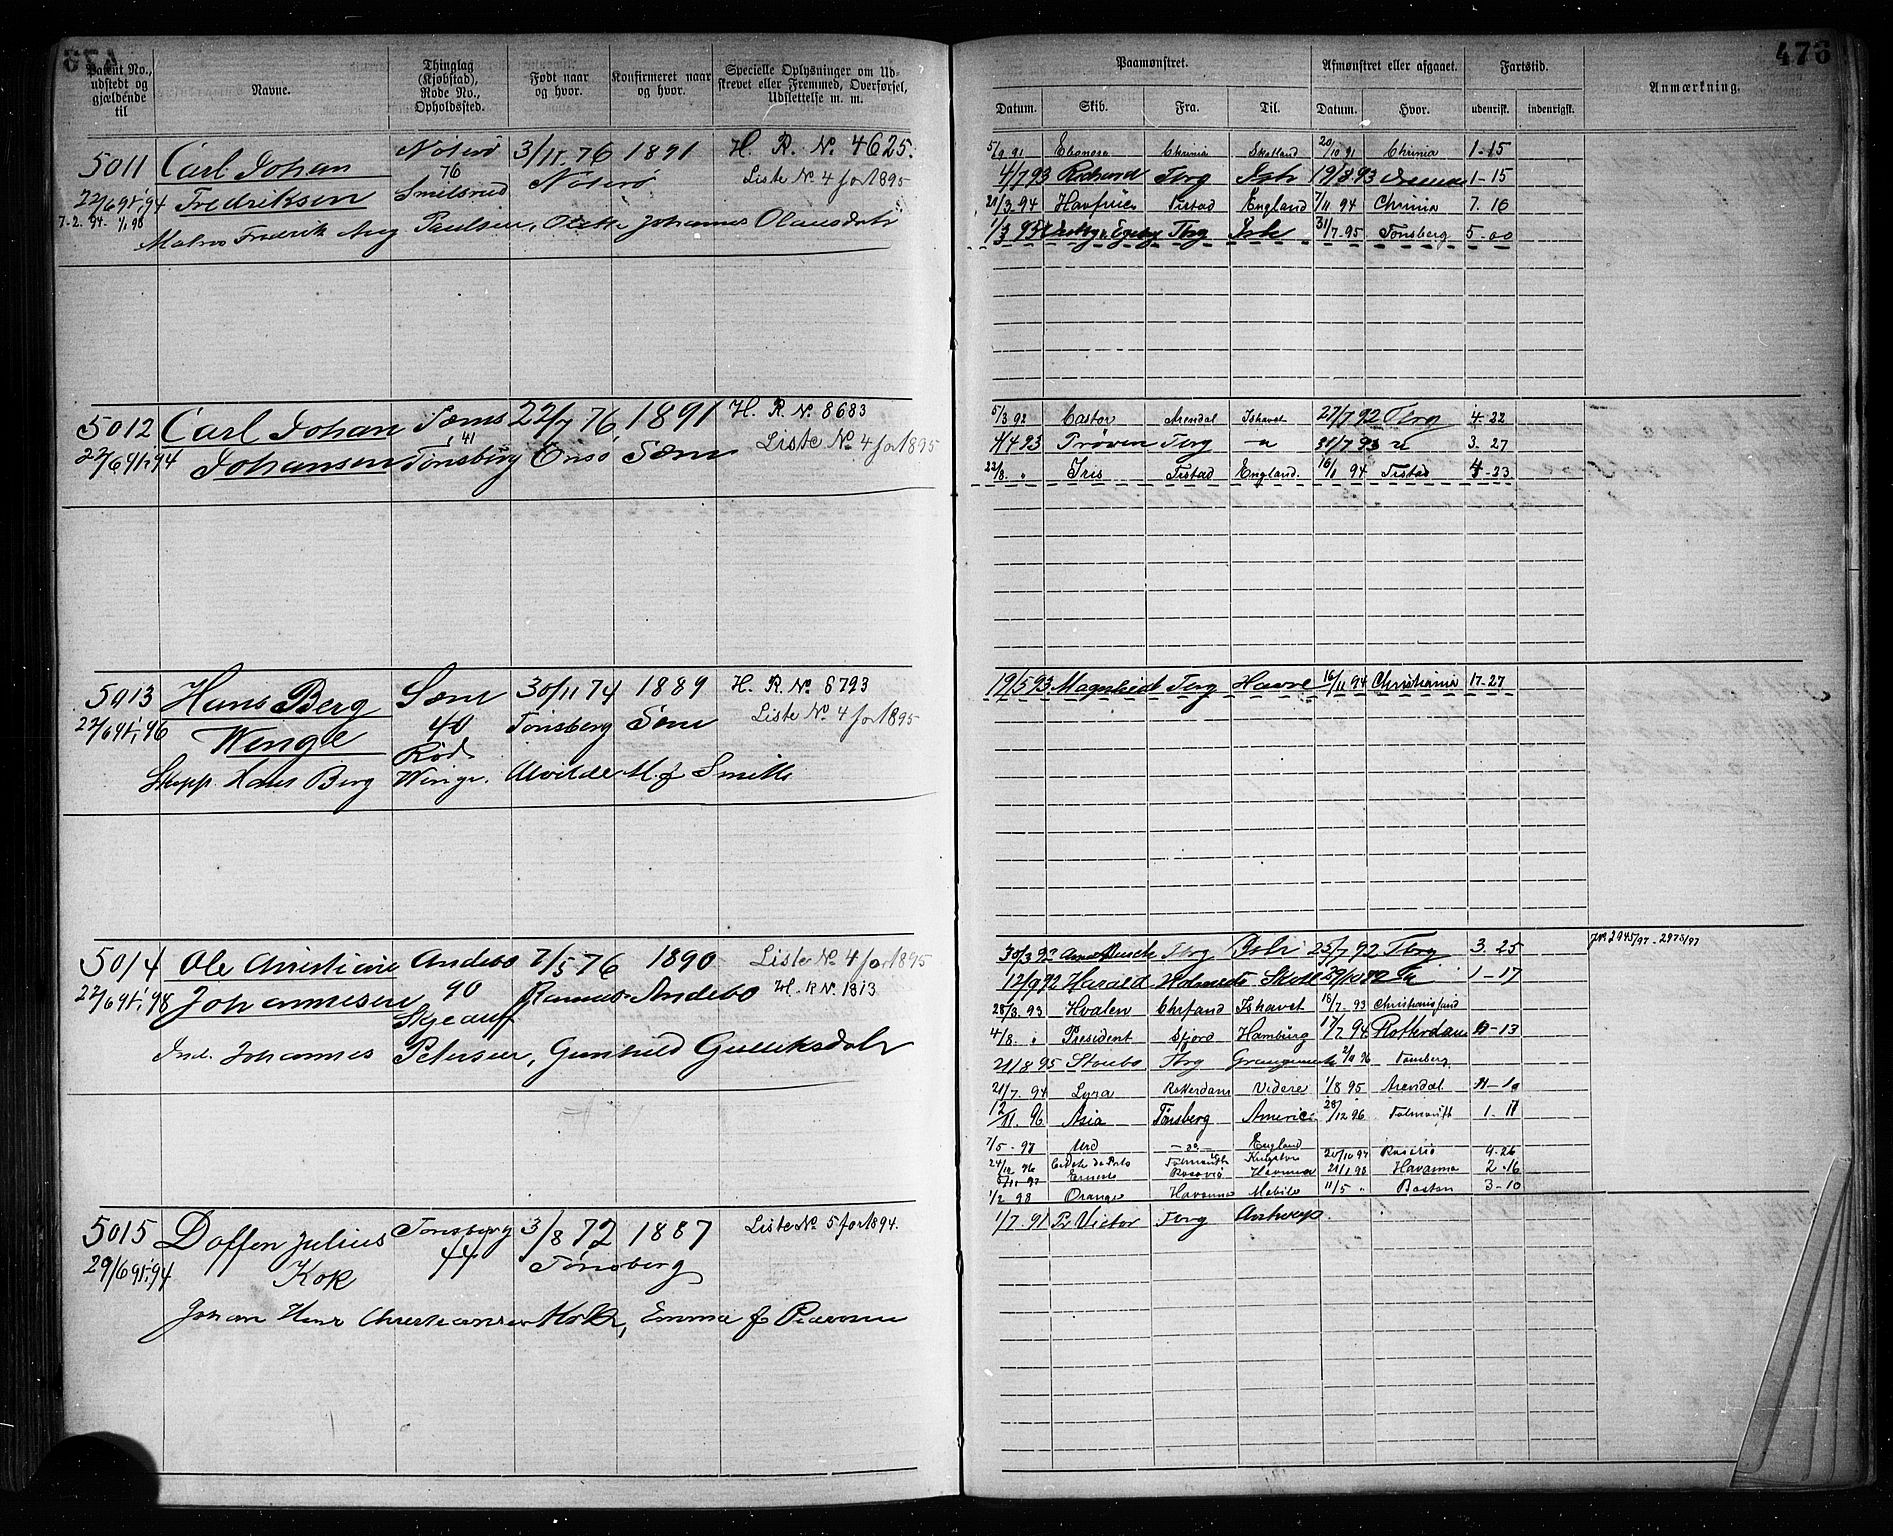 476
Patent No., udstedt og gjældende til
Navne.
Thinglag (Kjøbstad), Rode No., Opholdssted.
Født naar og hvor.
Konfirmeret naar og hvor.
Specielle Oplysninger om Udstrevet eller Fremmed, Overførsel, Udslettelse m. m.
Paamønstret.
Afmønstret eller afgaaet.
Fartstid.
Anmærkning.
Datum. Skib. Fra. Til. Datum. Hvor. udenrigsk. indenrigsk.
5011 Carl Johan Nøterø 3/11.76 1891 H. R. No. 4625.
22/6 91, 94 Fredriksen 76 Smidsrød Nøterø Liste No 4 for 1895
7-2. 94. 1/1 98
Matros Fredrik Aug Paulsen, Johannes Olausdatr
5/9 91 Chrinia Skotland 20/10 91 Chrinia 1-15
4/7 93 Richard Tbrg Ish 19/8 93 1-15
21/3.94 Havfruen Fistad England 7/11 94 Chrinia 7. 16
1/3 95 Tbrg Ish 31/7.95 Tønsberg 5-00
5012 Carl Johan Sæms 22/7 76 1891 H. R. No. 8683
22/6 91, 94 Johansen 41 Tønsberg Sæm Liste No. 4 for 1895
5/3 92 Castor Arendal Ishavet 27/7 92 Tbrg 4-22
4/4 93 Prøven Tbrg -"- 31/7 93 " 3. 27
22/8. " Iris Fistad England. 16/1 94 Fistad 4-23
5013 Hans Berg Sæm 30/11 74 1889 H. R. No. 6793
22/6 91, 96 Winge 40 Rød Tønsberg Sæm Liste No. 4 for 1895
Skipp. Hans Berg Winge. Alvilde M. f Smith
19/5 93 Magnhild Tbrg Havre 16/11 94 Christiania 17-27
5014 Ole Christian Andebo 7/5 76 1890 Liste No. 4 for 1895
22/6 91, 98 Johannesen 90 Ramnæs Andebo H. R No. 1313
Ind. Johannes Petersen, Gunhild Gulliksdatr
30/3 92 Tbrg Ish 25/7 92 Tbrg 3. 25
12/9 92 Harald Holmestr Skotl 29/10 92 1-17
28/3. 93 Hvalen Chrsand Ishavet 18/7. 93 Christianssand
4/8. " President Sfjord Hamburg 17/7 94 Rotterdam 11-13
21/8 95 Tbrg Grangemouth 2/11 96 Tønsberg
21/7. 94 Lyra Rotterdam Videre 1/8 95 Arendal 11-10
12/11. 96 Asia Tønsberg Americ 28/12 96 1. 11
7/5-97 Urd - " - England
24/12 96 Kingston 20/10 97 Rosario 9-26
Ernesto Rosario Havana 21/1 98 Havanna 2-16
1/2 98 Orange Havanna Mobile 11/5 " Boston 3-10
No 2945/97 - 2975/97
5015 Doffen Julius Tønsberg 3/8 72 1887 Liste No. 5 for 1894.
29/6 91, 94 Kok 44 Tønsberg
Johan Henr Christiansen Kok, Emma f
1/7.91 Pr Victor Tbrg Antwerp.